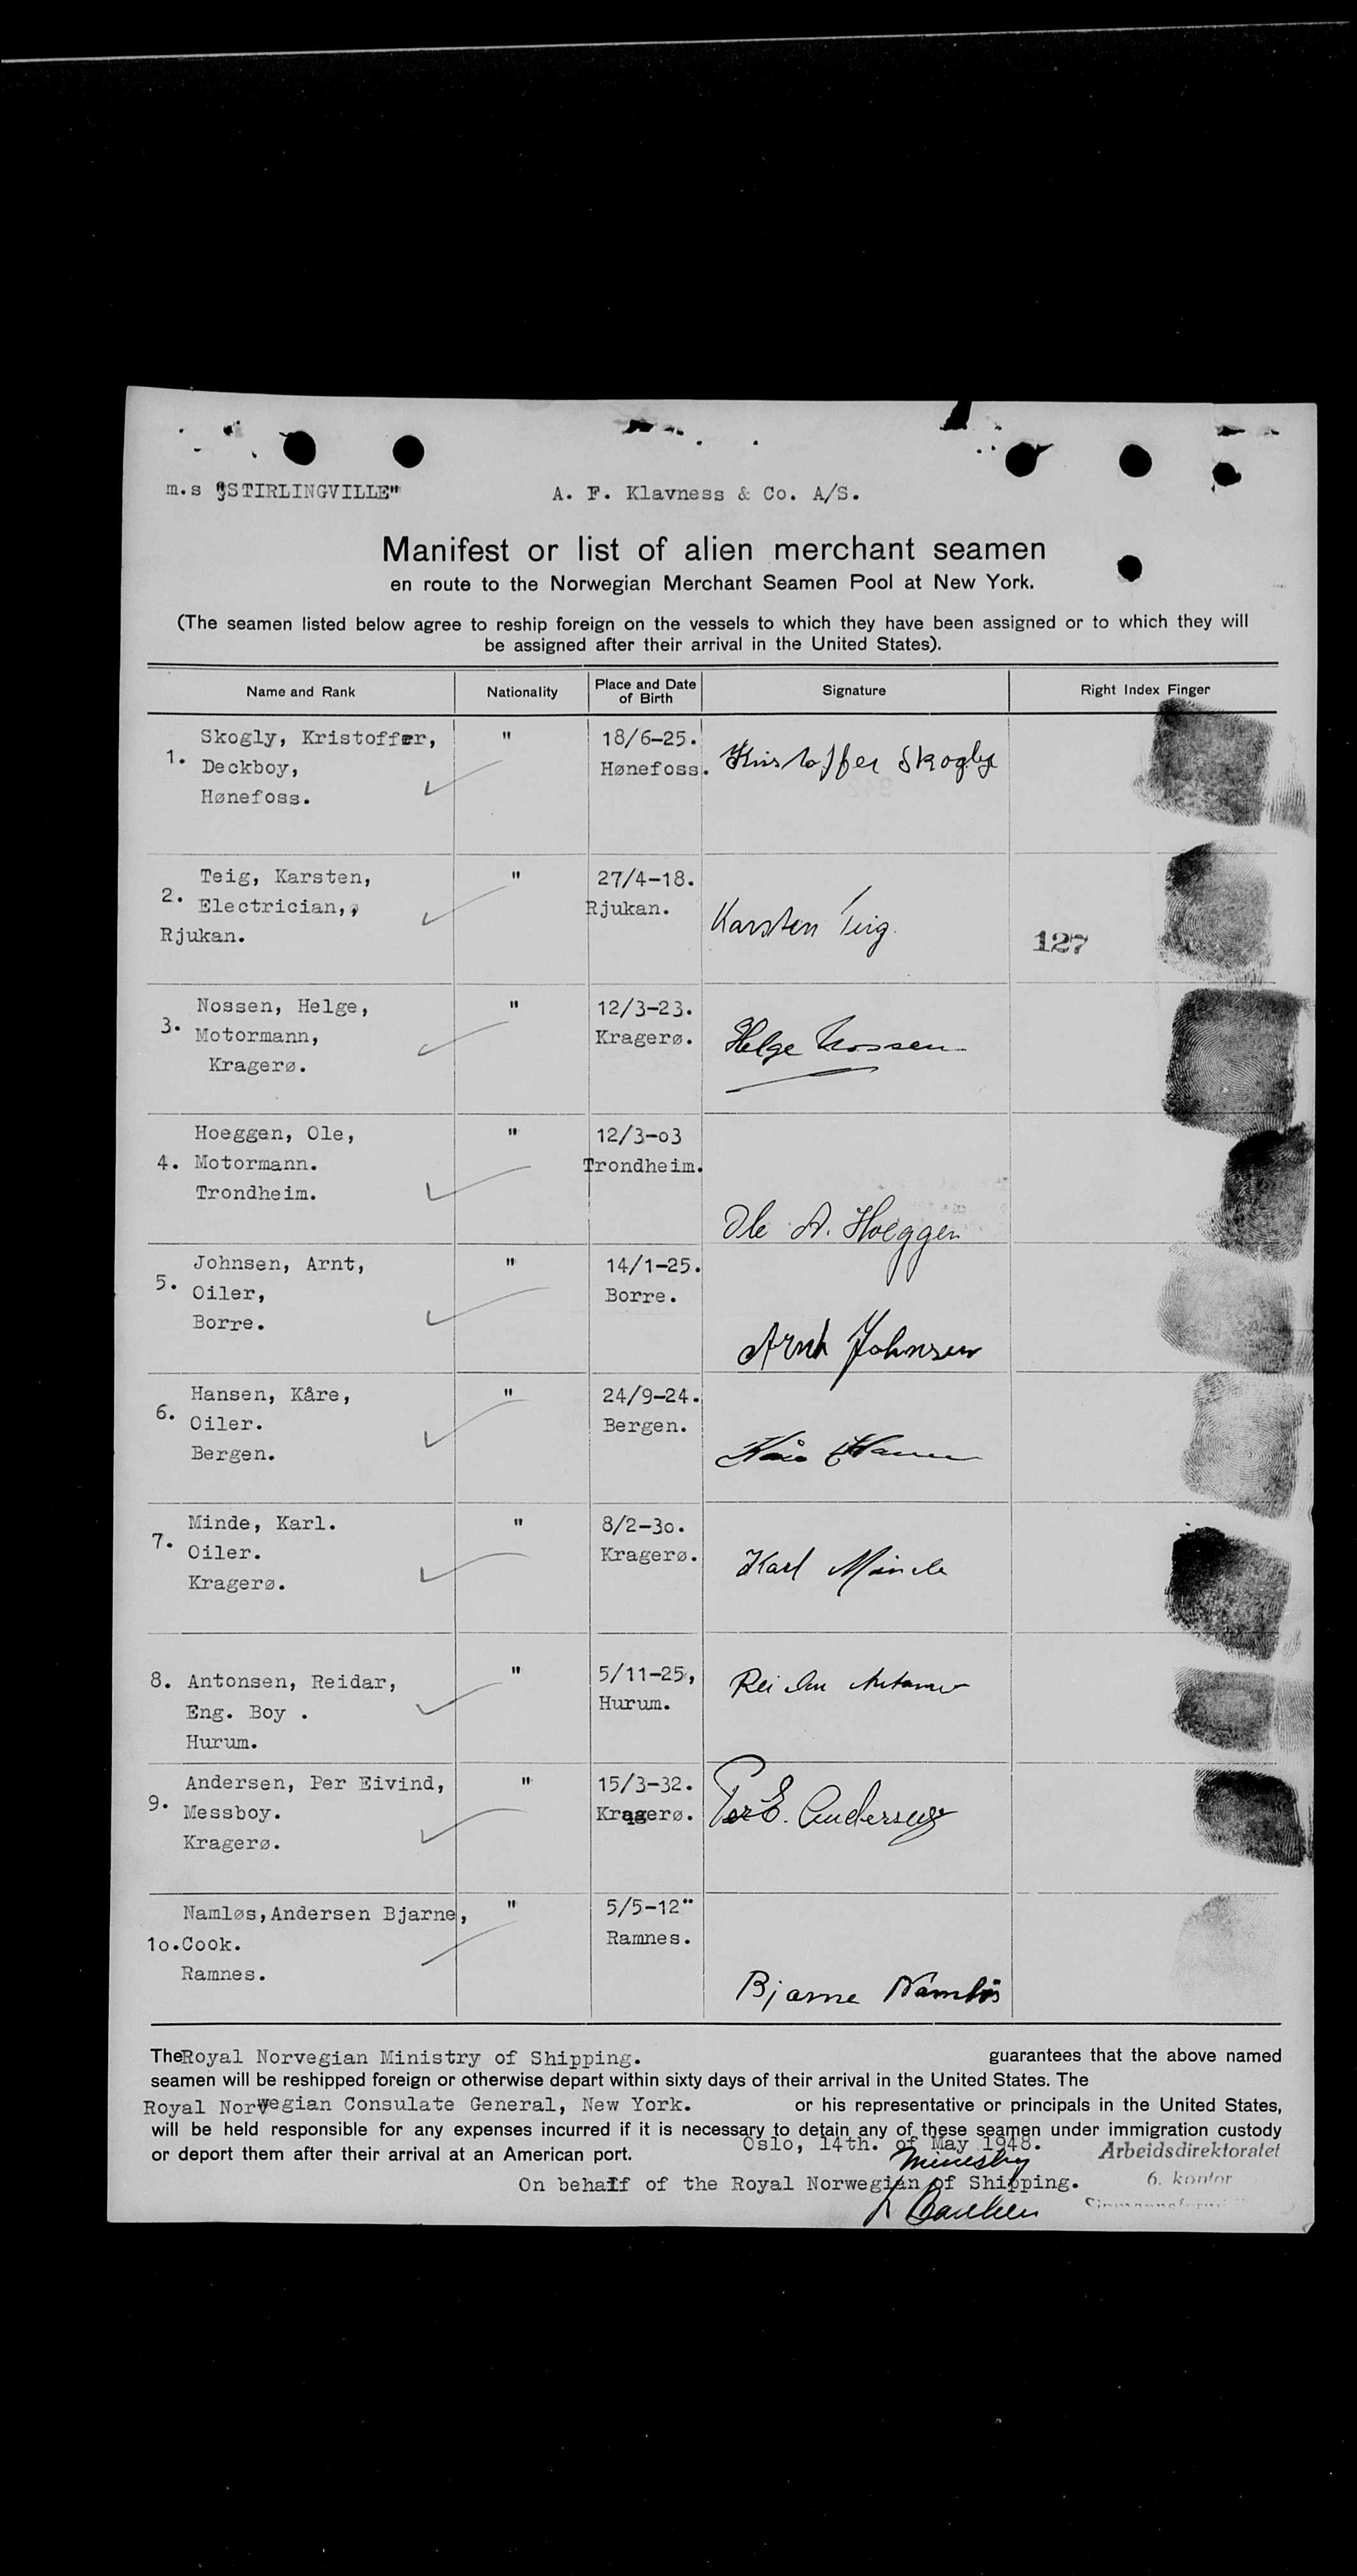 m.s "STIRLINGVILLE" A. F. Klavness & Co. A/S.
Manifest or list of alien merchant seamen
en route to the Norwegian Merchant Seamen Pool at New York.
(The seamen listed below agree to reship foreign on the vessels to which they have been assigned or to which they will
be assigned after their arrival in the United States).
Name and Rank Nationality Place and Date of Birth Signature Right Index Finger
1. Skogly, Kristoffer, " 18/6-25. Kristoffer Skogly
Deckboy, Hønefoss.
Hønefoss.
2. Teig, Karsten, " 27/4-18. Karsten Teig
Electrician, Rjukan.
Rjukan. 127
3. Nossen, Helge, " 12/3-23. Helge Nossen
Motormann, Kragerø.
Kragerø.
4. Hoeggen, Ole, " 12/3-o3
Motormann. Trondheim.
Trondheim.
Ole A. Hoeggen
5. Johnsen, Arnt, " 14/1-25.
Oiler, Borre.
Borre.
Arnt Johnsen
6. Hansen, Kåre, " 24/9-24.
Oiler. Bergen.
Bergen. Kåre Hansen
7. Minde, Karl. " 8/2-3o.
Oiler. Kragerø. Karl Minde
Kragerø.
8. Antonsen, Reidar, " 5/11-25, Reidar Antonsen
Eng. Boy . Hurum.
Hurum.
9. Andersen, Per Eivind, " 15/3-32.
Messboy. Kragerø. Per E. Andersen
Kragerø.
1o. Namløs,Andersen Bjarne, " 5/5-12"
Cook. Ramnes.
Ramnes.
Bjarne Namløs
The Royal Norvegian Ministry of Shipping. guarantees that the above named
seamen will be reshipped foreign or otherwise depart within sixty days of their arrival in the United States. The
Royal Norwegian Consulate General, New York. or his representative or principals in the United States,
will be held responsible for any expenses incurred if it is necessary to detain any of these seamen under immigration custody
or deport them after their arrival at an American port. Oslo, 14th. of May 1948. Arbeidsdirektoratet
Ministry 6. kontor
On behalf of the Royal Norwegian of Shipping.